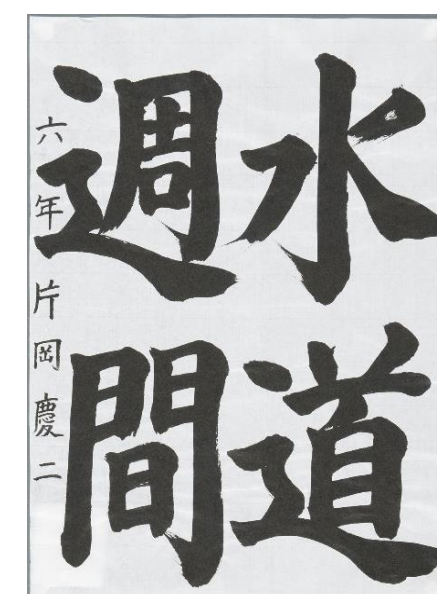 水道
週間
六年片岡慶二